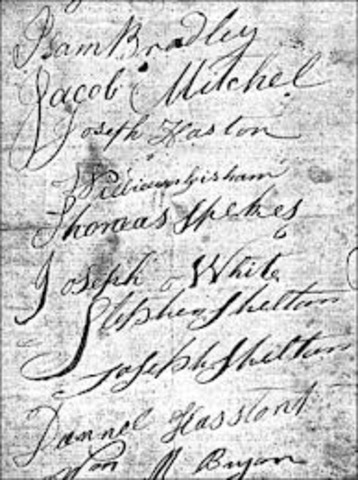 Isam Bradley
Jacob Mitchel
Joseph Haston
William Gisham
Thomas Spekes
Joseph White
Stephen Shelton
Joseph Shelton
Dannel Hasstont
Wm M Bryon